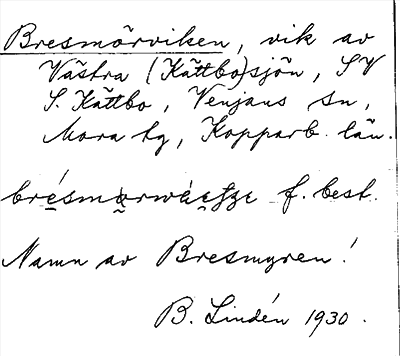 Bresmörviken, vik av
Västra (Kättbo)sjön, SV
S. Kättbo, Venjans sn,
Mora tg, Kopparb. län.
f. best.
Namn av Bresmyren!
B. Lindén 1930.